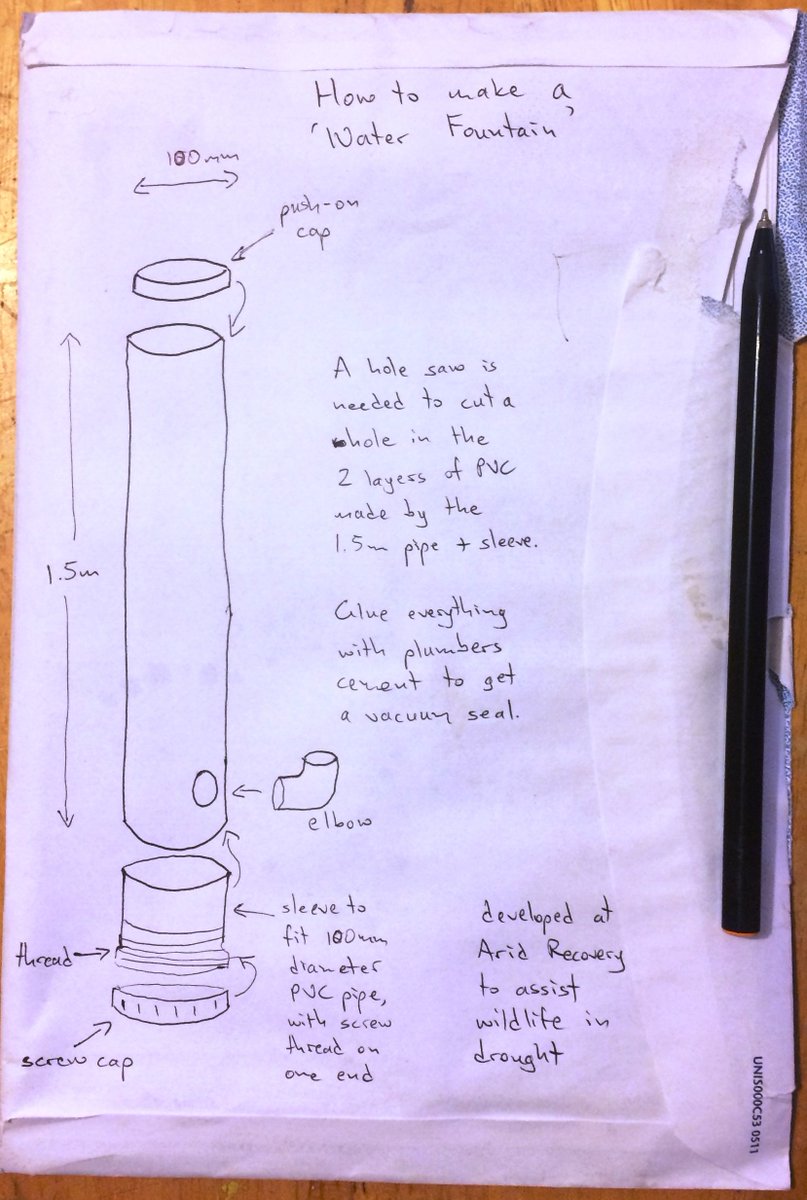 How to make a
'Water Fountain'
100mm
push-on
cap
A hole saw is
needed to cut a
hole in the
2 layers of PVC
made by the
1.5m pipe + sleeve.
1.5m
Glue everything
with plumbers
cement to get
a vacuum seal.
elbow
sleeve to
fit 100mm
diameter
PVC pipe,
with screw
thread on
one end
thread
screw cap
developed at
Arid Recovery
to assist
wildlife in
drought
UNIS000C53 0511